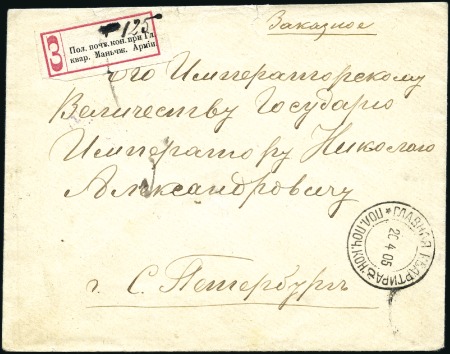 Заказное
З
125
Пол. почт. кон. при Гл.
квар. Маньчж. Арміи
Его Императорскому
Величеству Государю
Императору Николаю
Александровичу
ГЛАВНАЯ КВАРТИРА * ПОЛ. ПОЧ. КОН.
26 4 05
г. С. Петербургъ